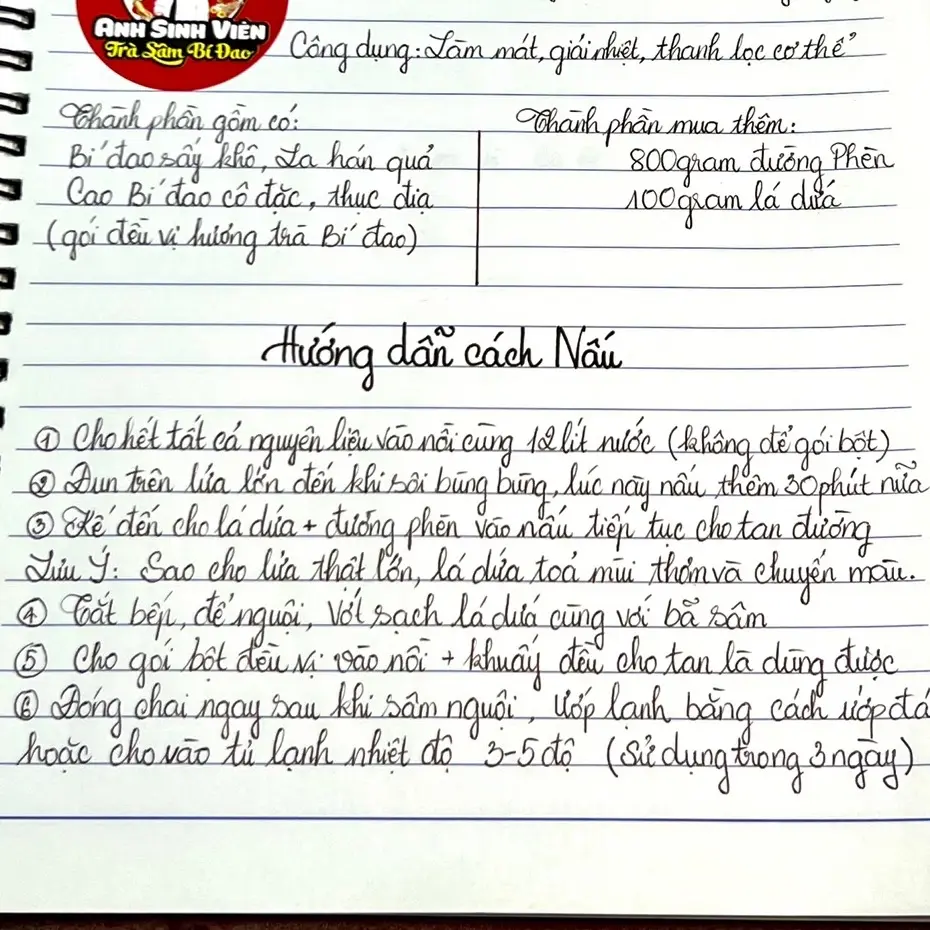 ANH SINH VIÊN
Trà Sâm Bí Đao
Công dụng: Làm mát, giải nhiệt, thanh lọc cơ thể
Thành phần gồm có:
Bí đao sấy khô, La hán quả
Cao Bí đao cô đặc, thục địa
(gói đều vị hương trà Bí đao)
Thành phần mua thêm:
800gram đường Phèn
100gram lá dứa
Hướng dẫn cách Nấu
① Cho hết tất cả nguyên liệu vào nồi cùng 12 lít nước (không để gói bột)
② Đun trên lửa lớn đến khi sôi bùng bùng, lúc này nấu thêm 30 phút nữa
③ Kế đến cho lá dứa + đường phèn vào nấu tiếp tục cho tan đường
Lưu Ý: Sao cho lửa thật lớn, lá dứa toả mùi thơm và chuyển màu.
④ Tắt bếp, để nguội, Vớt sạch lá dứa cùng với bã sâm
⑤ Cho gói bột đều vị vào nồi + khuấy đều cho tan là dùng được
⑥ Đóng chai ngay sau khi sâm nguội, Ướp lạnh bằng cách ướp đá
hoặc cho vào tủ lạnh nhiệt độ 3-5 độ (sử dụng trong 3 ngày)